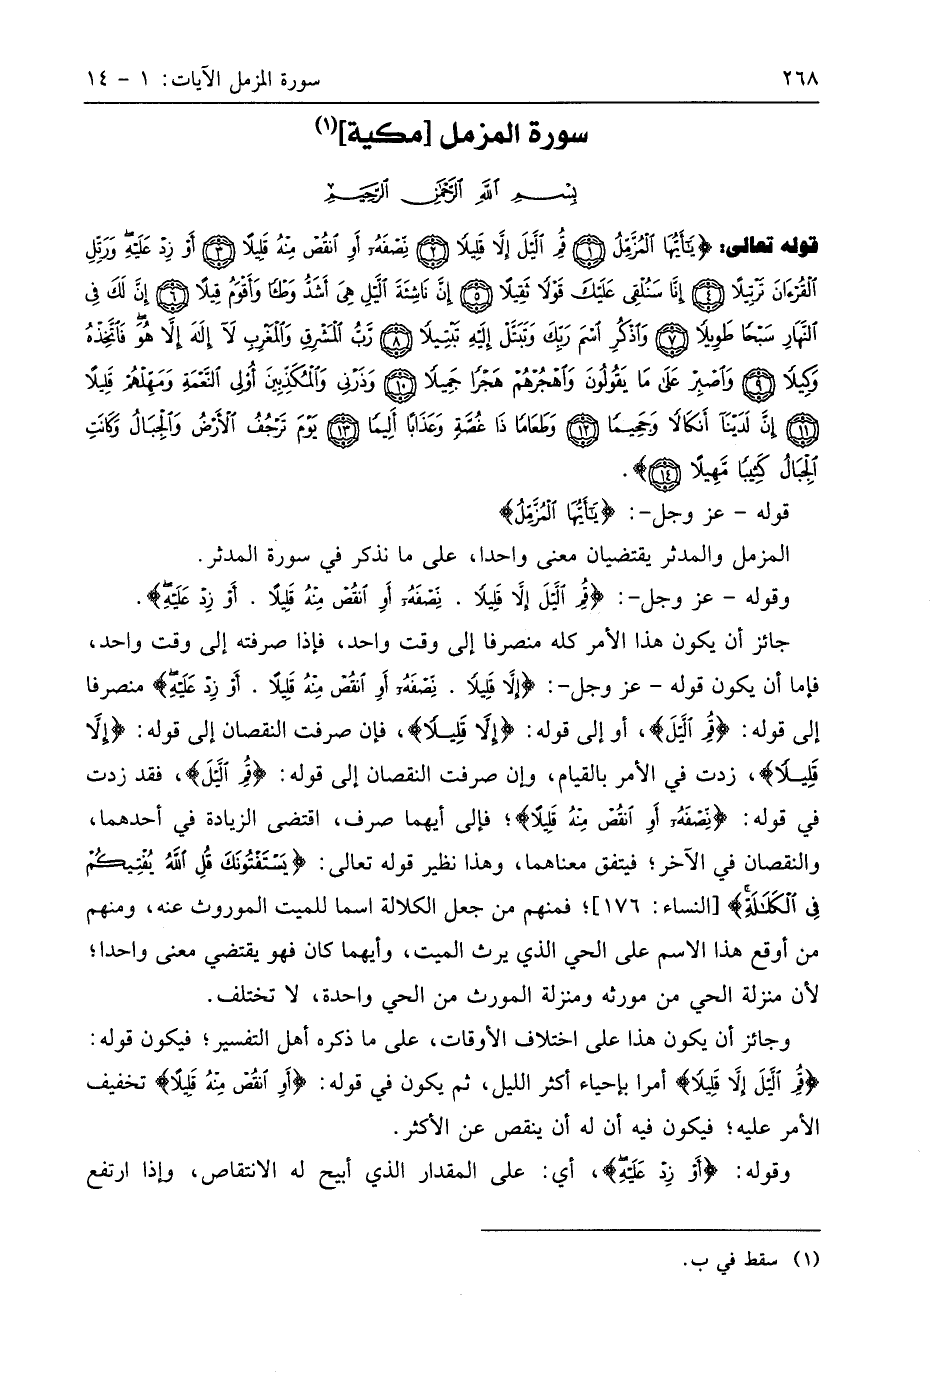 ٢٦٨ سورة المزمل الآيات: ١ - ١٤
سورة المزمل [مكية](١)
بِسْمِ ٱللَّهِ ٱلرَّحْمَٰنِ ٱلرَّحِيمِ
قوله تعالى: ﴿يَٰٓأَيُّهَا ٱلْمُزَّمِّلُ ۝١ قُمِ ٱلَّيْلَ إِلَّا قَلِيلًا ۝٢ نِّصْفَهُۥٓ أَوِ ٱنقُصْ مِنْهُ قَلِيلًا ۝٣ أَوْ زِدْ عَلَيْهِ وَرَتِّلِ
ٱلْقُرْءَانَ تَرْتِيلًا ۝٤ إِنَّا سَنُلْقِى عَلَيْكَ قَوْلًا ثَقِيلًا ۝٥ إِنَّ نَاشِئَةَ ٱلَّيْلِ هِىَ أَشَدُّ وَطْـًٔا وَأَقْوَمُ قِيلًا ۝٦ إِنَّ لَكَ فِى
ٱلنَّهَارِ سَبْحًا طَوِيلًا ۝٧ وَٱذْكُرِ ٱسْمَ رَبِّكَ وَتَبَتَّلْ إِلَيْهِ تَبْتِيلًا ۝٨ رَّبُّ ٱلْمَشْرِقِ وَٱلْمَغْرِبِ لَآ إِلَٰهَ إِلَّا هُوَ فَٱتَّخِذْهُ
وَكِيلًا ۝٩ وَٱصْبِرْ عَلَىٰ مَا يَقُولُونَ وَٱهْجُرْهُمْ هَجْرًا جَمِيلًا ۝١٠ وَذَرْنِى وَٱلْمُكَذِّبِينَ أُو۟لِى ٱلنَّعْمَةِ وَمَهِّلْهُمْ قَلِيلًا
۝١١ إِنَّ لَدَيْنَآ أَنكَالًا وَجَحِيمًا ۝١٢ وَطَعَامًا ذَا غُصَّةٍ وَعَذَابًا أَلِيمًا ۝١٣ يَوْمَ تَرْجُفُ ٱلْأَرْضُ وَٱلْجِبَالُ وَكَانَتِ
ٱلْجِبَالُ كَثِيبًا مَّهِيلًا ۝١٤﴾.
قوله - عز وجل-: ﴿يَٰٓأَيُّهَا ٱلْمُزَّمِّلُ﴾
المزمل والمدثر يقتضيان معنى واحدا، على ما نذكر في سورة المدثر.
وقوله - عز وجل-: ﴿قُمِ ٱلَّيْلَ إِلَّا قَلِيلًا . نِّصْفَهُۥٓ أَوِ ٱنقُصْ مِنْهُ قَلِيلًا . أَوْ زِدْ عَلَيْهِ﴾.
جائز أن يكون هذا الأمر كله منصرفا إلى وقت واحد، فإذا صرفته إلى وقت واحد،
فإما أن يكون قوله - عز وجل-: ﴿إِلَّا قَلِيلًا . نِّصْفَهُۥٓ أَوِ ٱنقُصْ مِنْهُ قَلِيلًا . أَوْ زِدْ عَلَيْهِ﴾ منصرفا
إلى قوله: ﴿قُمِ ٱلَّيْلَ﴾، أو إلى قوله: ﴿إِلَّا قَلِيلًا﴾، فإن صرفت النقصان إلى قوله: ﴿إِلَّا
قَلِيلًا﴾، زدت في الأمر بالقيام، وإن صرفت النقصان إلى قوله: ﴿قُمِ ٱلَّيْلَ﴾، فقد زدت
في قوله: ﴿نِّصْفَهُۥٓ أَوِ ٱنقُصْ مِنْهُ قَلِيلًا﴾؛ فإلى أيهما صرف، اقتضى الزيادة في أحدهما،
والنقصان في الآخر؛ فيتفق معناهما، وهذا نظير قوله تعالى: ﴿يَسْتَفْتُونَكَ قُلِ ٱللَّهُ يُفْتِيكُمْ
فِى ٱلْكَلَٰلَةِ﴾ [النساء: ١٧٦]؛ فمنهم من جعل الكلالة اسما للميت الموروث عنه، ومنهم
من أوقع هذا الاسم على الحي الذي يرث الميت، وأيهما كان فهو يقتضي معنى واحدا؛
لأن منزلة الحي من مورثه ومنزلة المورث من الحي واحدة، لا تختلف.
وجائز أن يكون هذا على اختلاف الأوقات، على ما ذكره أهل التفسير؛ فيكون قوله:
﴿قُمِ ٱلَّيْلَ إِلَّا قَلِيلًا﴾ أمرا بإحياء أكثر الليل، ثم يكون في قوله: ﴿أَوِ ٱنقُصْ مِنْهُ قَلِيلًا﴾ تخفيف
الأمر عليه؛ فيكون فيه أن له أن ينقص عن الأكثر.
وقوله: ﴿أَوْ زِدْ عَلَيْهِ﴾، أي: على المقدار الذي أبيح له الانتقاص، وإذا ارتفع
(١) سقط في ب.